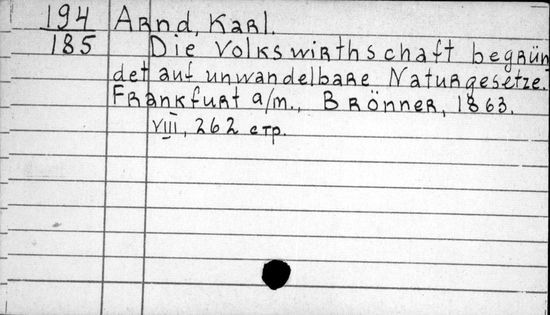 194 Arnd, Karl.
185 Die Volkswirthschaft begrün
det auf unwandelbare Naturgesetze.
Frankfurt a/m., Brönner, 1863.
VIII, 262 стр.